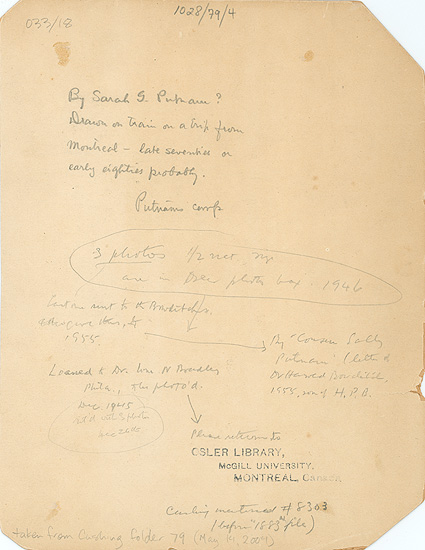 033/18
1028/79/4
By Sarah G. Putnam?
Drawn on train on a trip from
Montreal – late seventies or
early eighties probably.
Putnam
3 photos 1/2
are in photo box 1946
sent to the Bowditches.
1955.
By "Cousin Sally
Putnam" (letter of
Dr Harold Bowditch,
1955, son of H.P.B.
Loaned to Dr. N Bradley
Phila.,
Dec 1945
Please return to
OSLER LIBRARY,
McGILL UNIVERSITY,
MONTREAL, CANADA.
Cushing #8303
(before 1883 file)
taken from Cushing folder 79 (May 14, 2009)